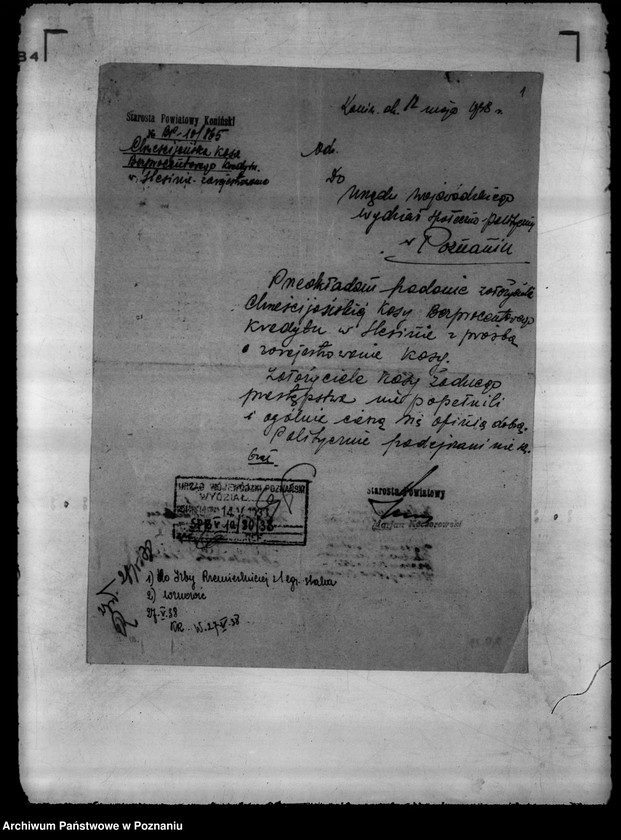 84
1
Starosta Powiatowy Koniński
№ BP-10/865
Chrześcijańska Kasa
Bezprocentowego Kredytu
w Ślesinie - zarejestrowanie
Konin, d. 12 maja 1938 r.
Do
Urzędu Wojewódzkiego
Wydział Społeczno-Polityczny
w Poznaniu
Przedkładam podanie założycieli
Chrześcijańskiej Kasy Bezprocentowego
Kredytu w Ślesinie z prośbą
o zarejestrowanie Kasy.
Założyciele Kasy żadnego
przestępstwa nie popełnili
i ogólnie cieszą się opinią dobrą.
Politycznie podejrzani nie są.
URZĄD WOJEWÓDZKI POZNAŃSKI
WYDZIAŁ
14 V
SPB V 10/30/38
Starosta Powiatowy
Marjan Kaczorowski
1) Do Izby Rzemieślniczej z 1 egz. statutu
2)
27.V.38
27.V.38
Archiwum Państwowe w Poznaniu